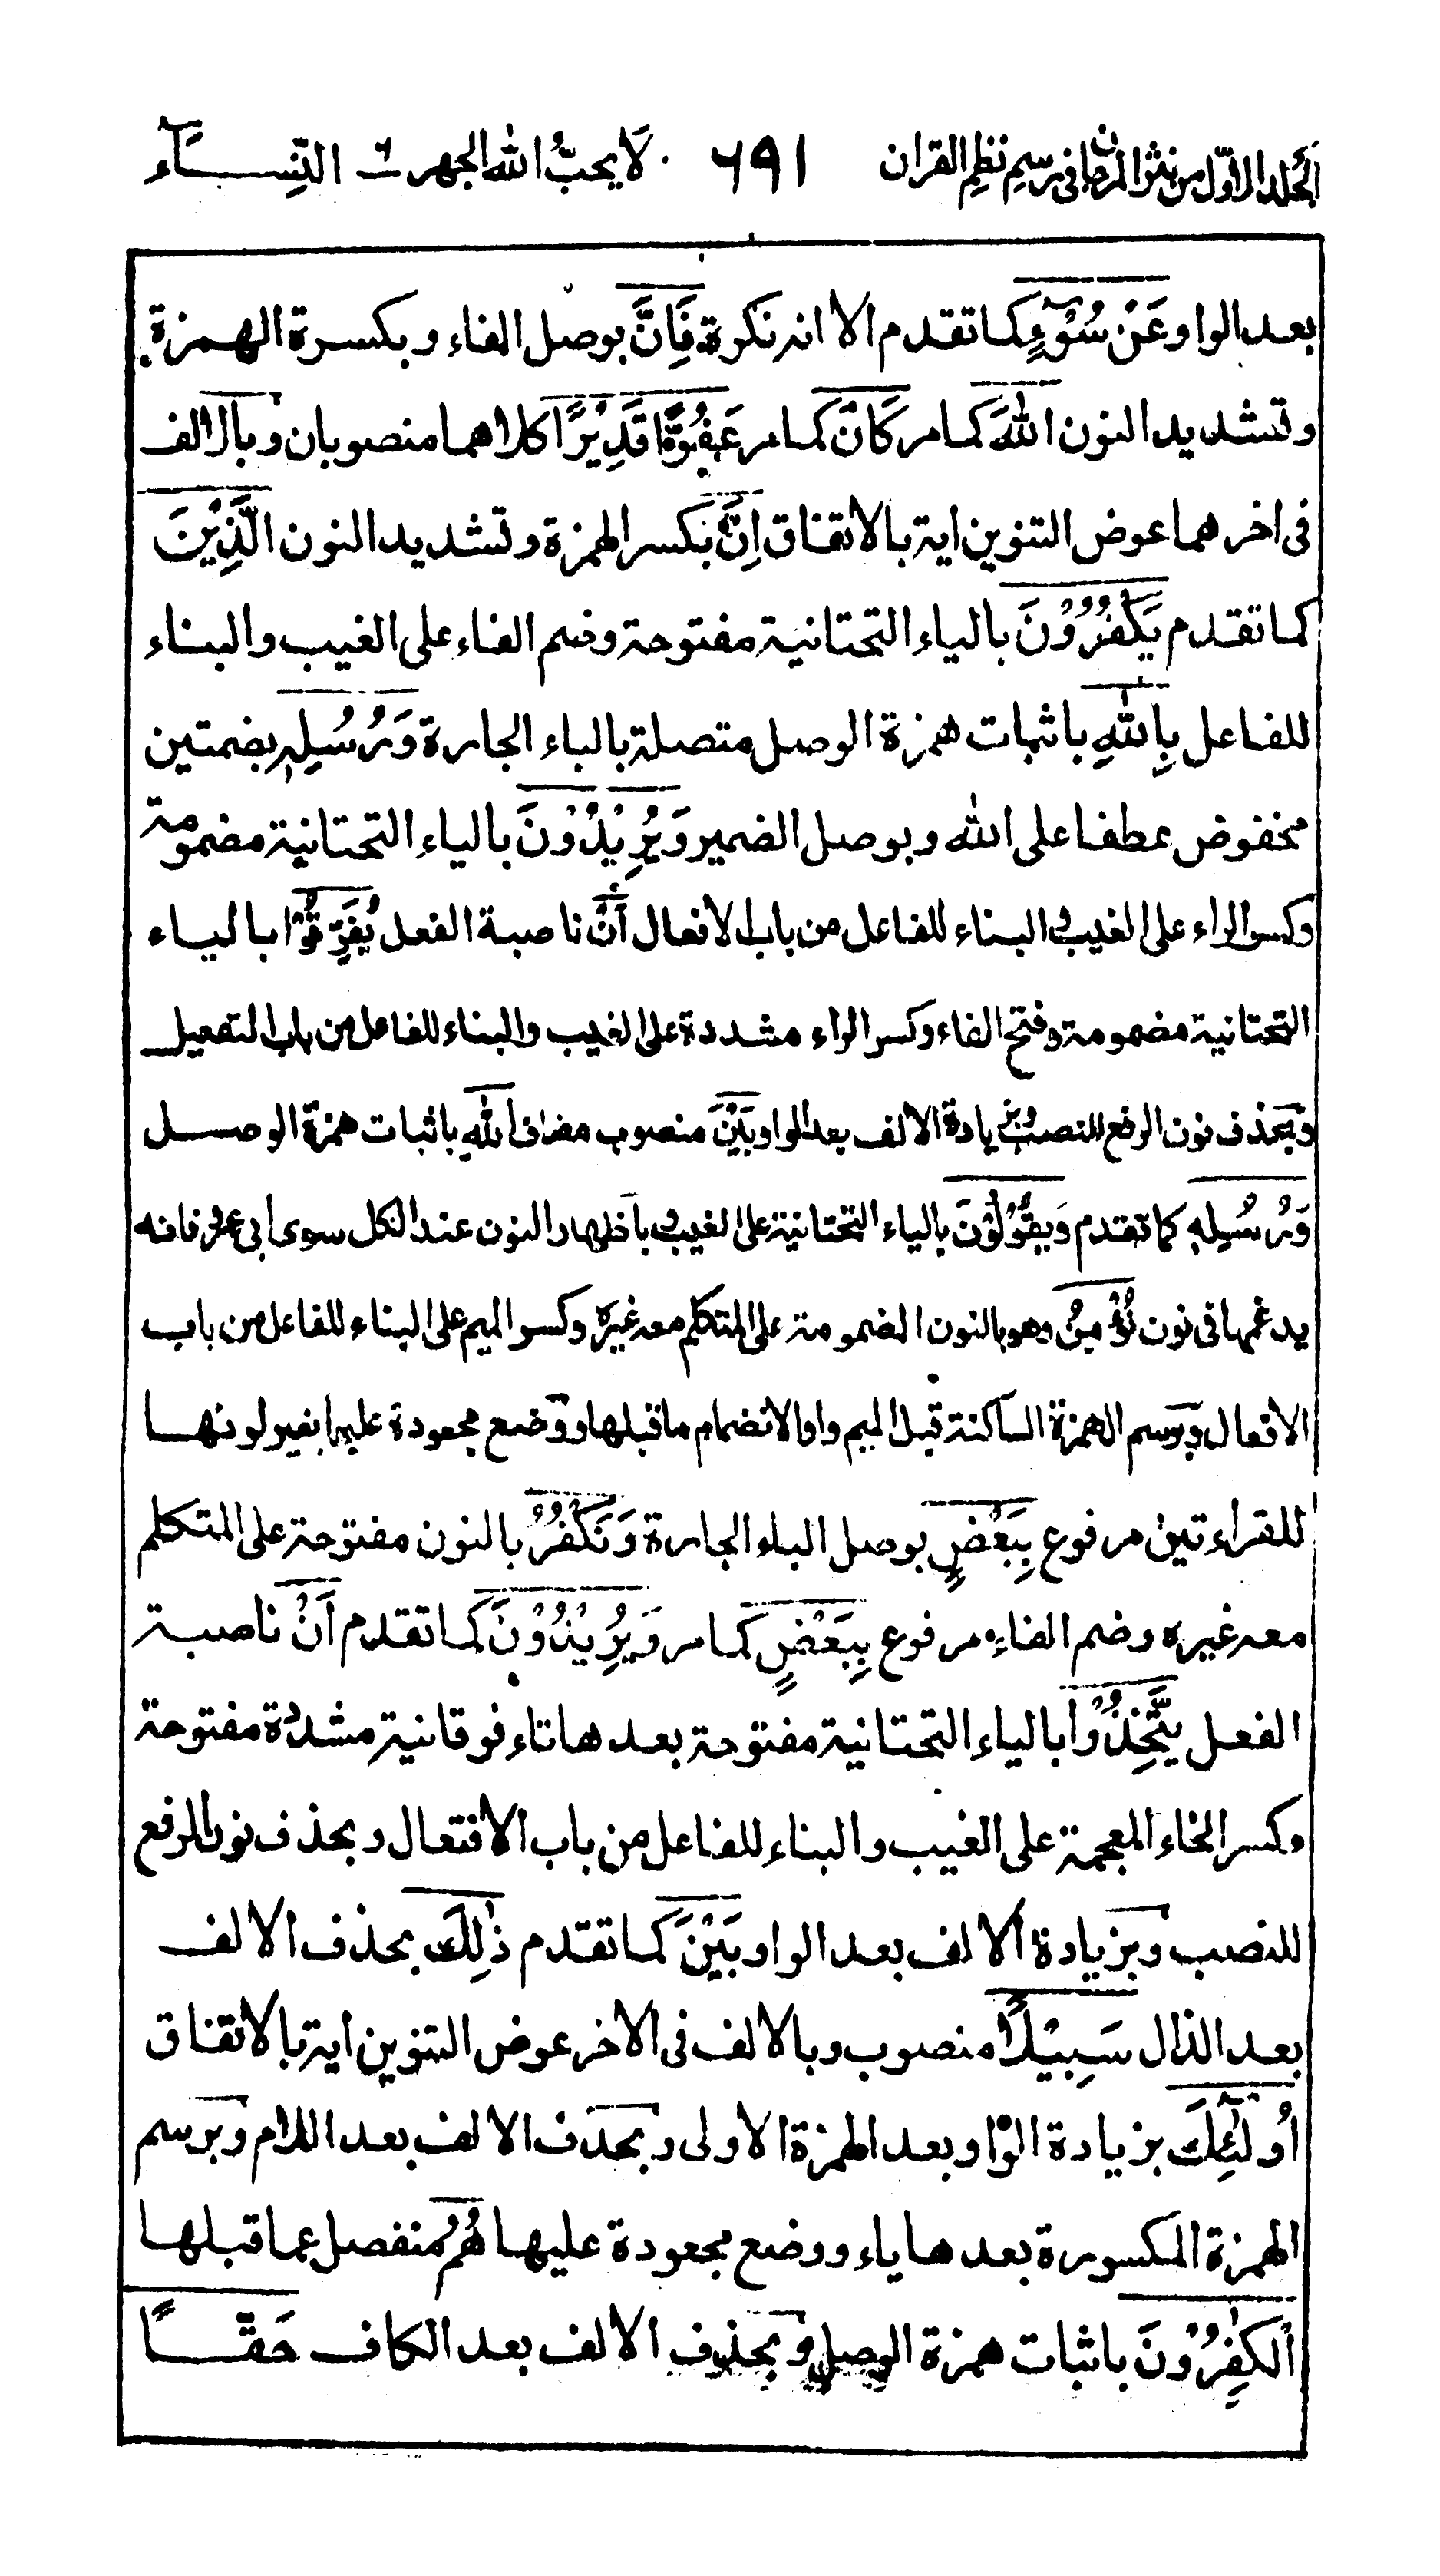 الجلد الاول من نثر المرجان فى رسم نظم القران ٦٩١ لا يحب الله الجهر ٦ النساء
بعد الواو عَنْ سُوْٓءٍ كما تقدم الا انه نكرة فَاِنَّ بوصل الفاء وبكسرة الهمزة
وتشديد النون اللهَ كما مر كَانَ كما مر عَفُوًّا قَدِيْرًا كلاهما منصوبان وبالالف
فى اخرهما عوض التنوين اية بالاتفاق اِنَّ بكسر الهمزة وتشديد النون الَّذِيْنَ
كما تقدم يَكْفُرُوْنَ بالياء التحتانية مفتوحة وضم الفاء على الغيب والبناء
للفاعل بِاللهِ باثبات همزة الوصل متصلة بالباء الجارة وَرُسُلِهٖ بضمتين
مخفوض عطفا على الله وبوصل الضمير وَيُرِيْدُوْنَ بالياء التحتانية مضمومة
وكسر الراء على الغيب والبناء للفاعل من باب الافعال اَنْ ناصبة الفعل يُفَرِّقُوْا بالياء
التحتانية مضمومة وفتح الفاء وكسر الراء مشددة على الغيب والبناء للفاعل من باب التفعيل
وبحذف نون الرفع للنصب وبزيادة الالف بعد الواو بَيْنَ منصوب مضاف اللهِ باثبات همزة الوصل
وَرُسُلِهٖ كما تقدم وَيَقُوْلُوْنَ بالياء التحتانية على الغيب وباظهار النون عند الكل سوى ابى عمرو فانه
يدغمها فى نون نُؤْمِنُ وهو بالنون المضمومة على المتكلم معه غيره وكسر الميم على البناء للفاعل من باب
الافعال وبرسم الهمزة الساكنة قبل الميم واوا لانضمام ما قبلها ووضع مجعودة عليها بغير لونها
للقراءتين مرفوع بِبَعْضٍ بوصل الباء الجارة وَنَكْفُرُ بالنون مفتوحة على المتكلم
معه غيره وضم الفاء مرفوع بِبَعْضٍ كما مر وَيُرِيْدُوْنَ كما تقدم اَنْ ناصبة
الفعل يَّتَّخِذُوْا بالياء التحتانية مفتوحة بعدها تاء فوقانية مشددة مفتوحة
وكسر الخاء المعجمة على الغيب والبناء للفاعل من باب الافتعال وبحذف نون الرفع
للنصب وبزيادة الالف بعد الواو بَيْنَ كما تقدم ذٰلِكَ بحذف الالف
بعد الذال سَبِيْلًا منصوب وبالالف فى الاخر عوض التنوين اية بالاتفاق
اُولٰٓئِكَ بزيادة الواو بعد الهمزة الاولى وبحذف الالف بعد اللام وبرسم
الهمزة المكسورة بعدها ياء ووضع مجعودة عليها هُمُ منفصل عما قبلها
الْكٰفِرُوْنَ باثبات همزة الوصل وبحذف الالف بعد الكاف حَقًّا